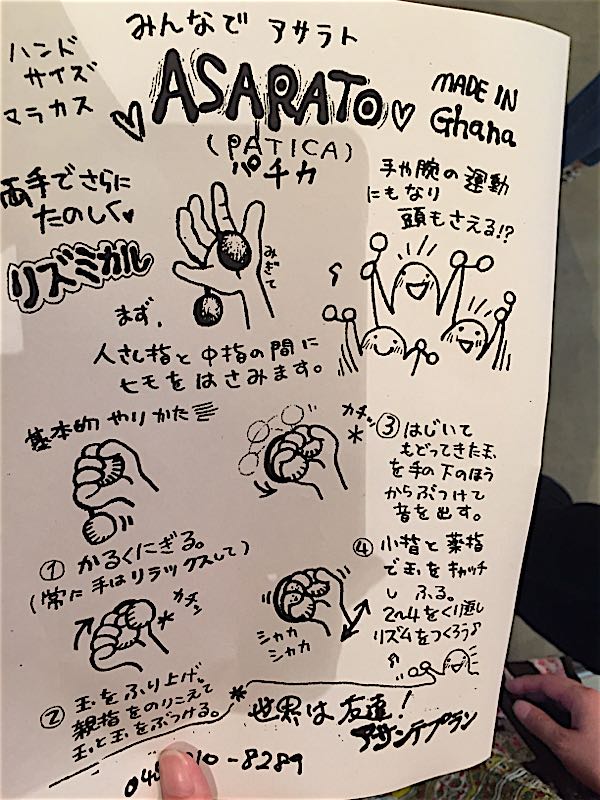 みんなで アサラト
ハンド
サイズ
マラカス
ASARATO
MADE IN
Ghana
(PATICA)
パチカ
両手でさらに
たのしく
リズミカル
手や腕の運動
にもなり
頭もさえる!?
みぎて
まず、
人さし指と中指の間に
ヒモをはさみます。
基本的 やりかた
① かるくにぎる。
(常に 手はリラックスして)
カチン
② 玉をふり上げ。
親指をのりこえて
玉と玉をぶつける。
カチン
③ はじいて
もどってきた玉
を手の下のほう
からぶつけて
音を出す。
④ 小指と薬指
で玉をキャッチ
し ふる。
2〜4をくり返し
リズムをつくろう♪
シャカ
シャカ
世界は友達!
アサンテプラン
10-8289